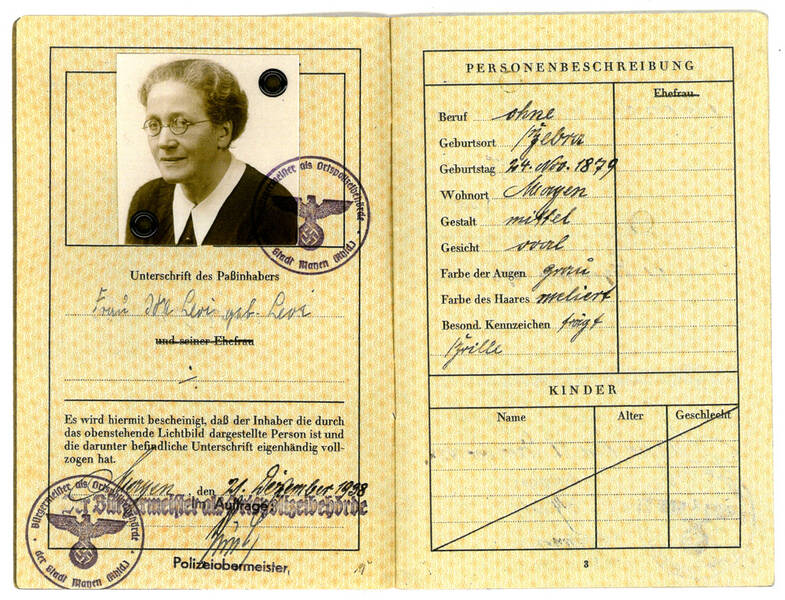 Bürgermeister als Ortspolizeibehörde
Stadt Mayen (Rhld.)
Unterschrift des Paßinhabers
Frau Levi geb. Levi
und seiner Ehefrau
Es wird hiermit bescheinigt, daß der Inhaber die durch
das obenstehende Lichtbild dargestellte Person ist und
die darunter befindliche Unterschrift eigenhändig voll-
zogen hat.
Mayen, den 21. Dezember 1938
Der Bürgermeister als Ortspolizeibehörde
Im Auftrage
Polizeiobermeister,
Bürgermeister als Ortspolizeibehörde
der Stadt Mayen (Rhld.)
PERSONENBESCHREIBUNG
Ehefrau
Beruf ohne
Geburtsort
Geburtstag 24. Nov. 1879
Wohnort Mayen
Gestalt mittel
Gesicht oval
Farbe der Augen grau
Farbe des Haares meliert
Besond. Kennzeichen trägt
Brille
KINDER
Name Alter Geschlecht
3